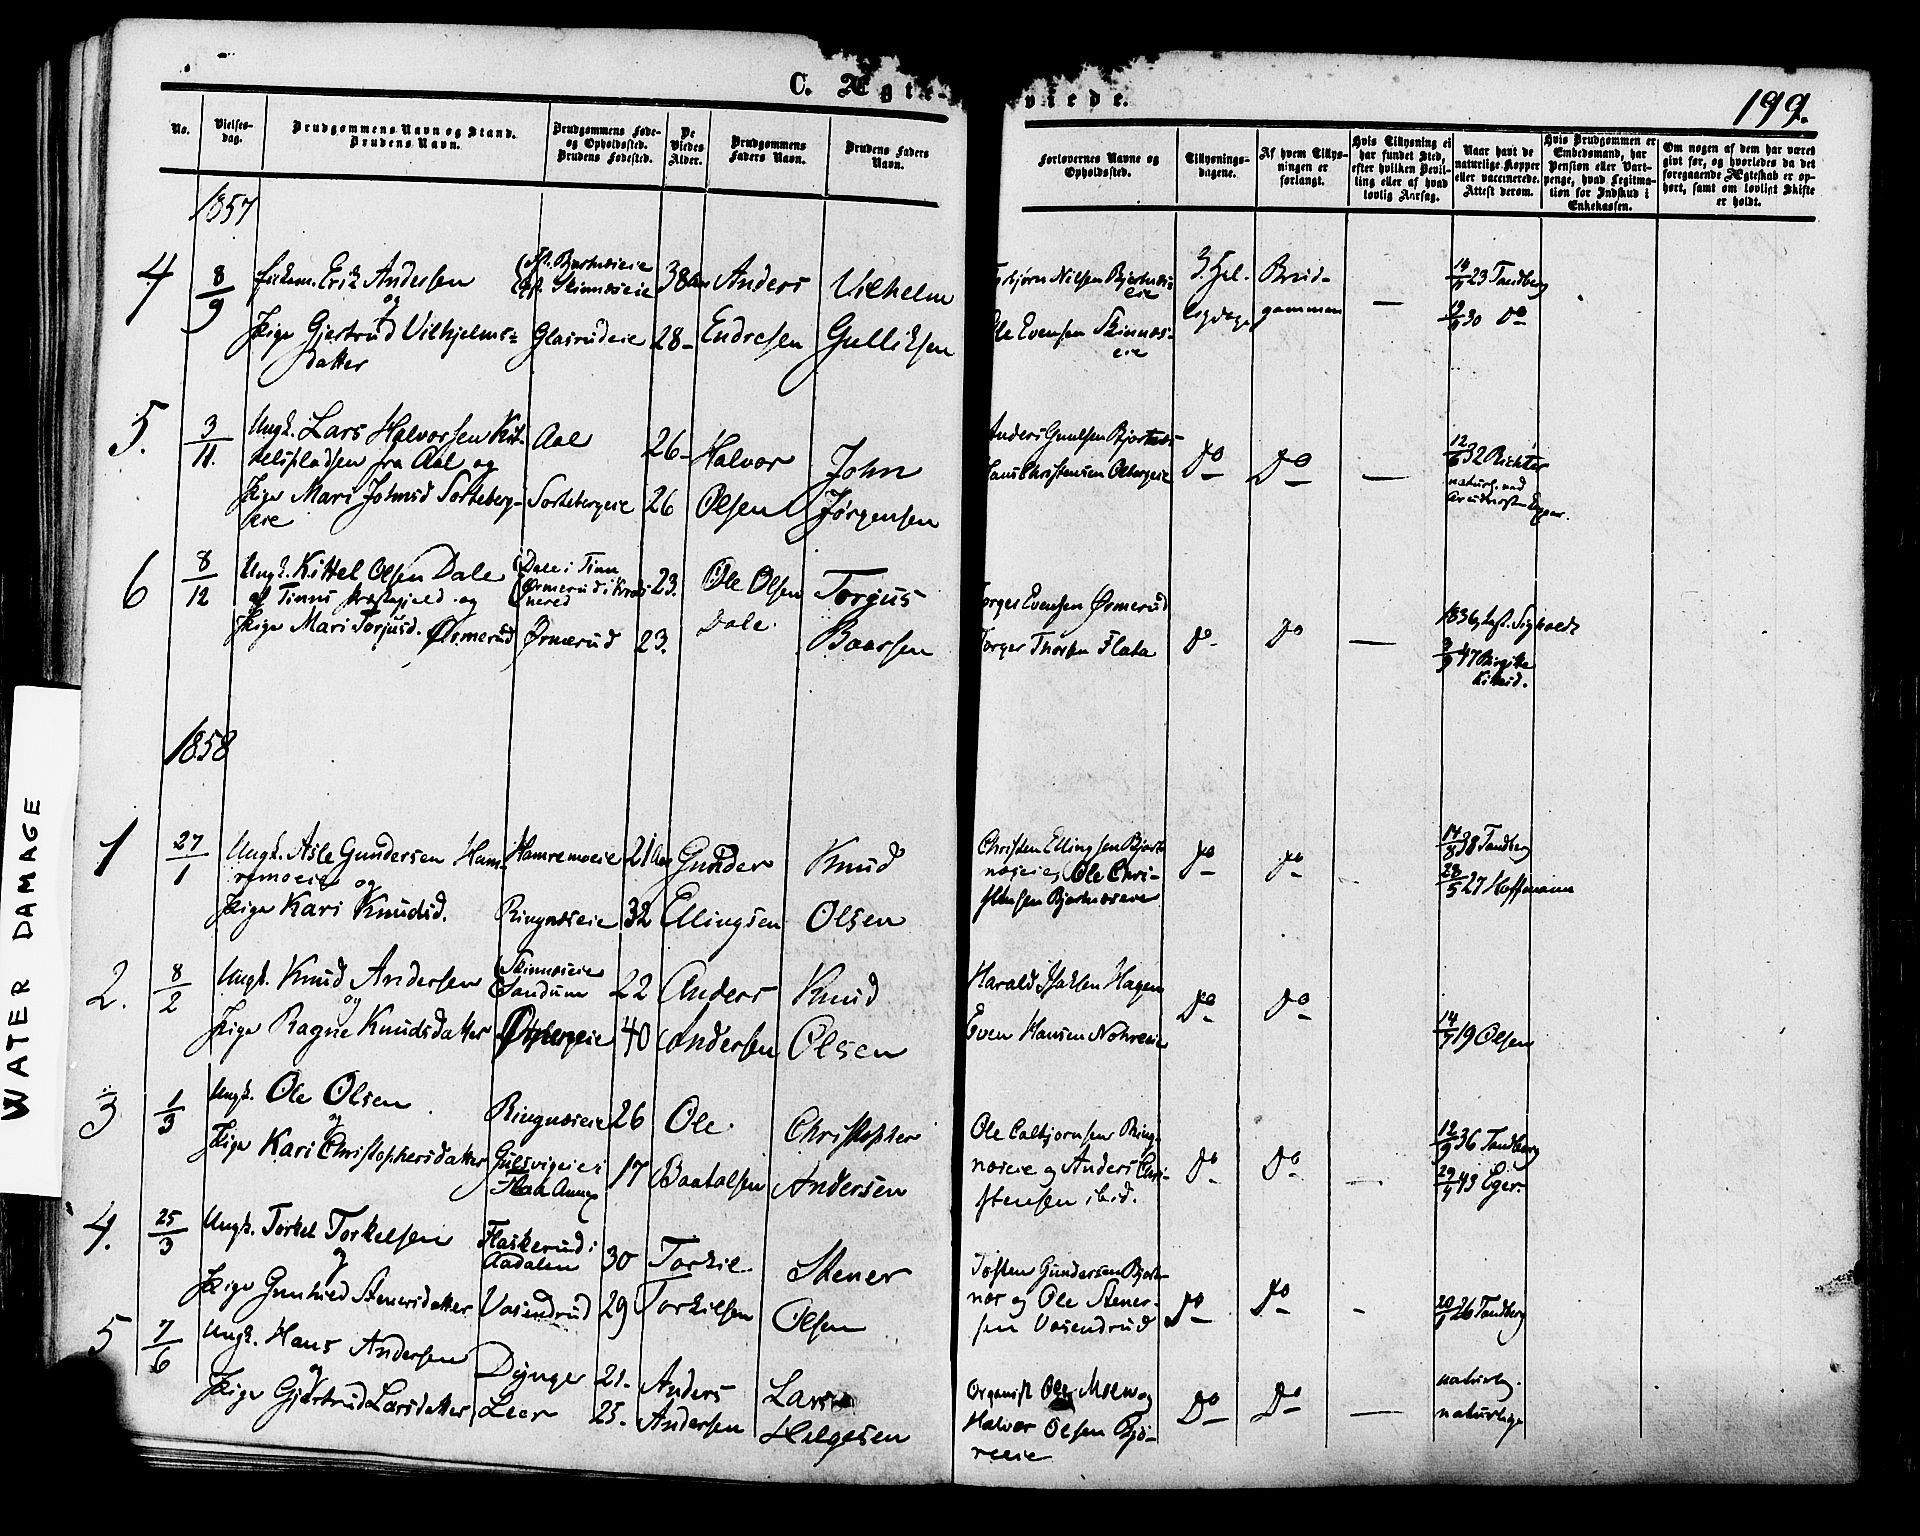 C. Ægte- viede.
199.
No.
Vielses-
dag.
Brudgommens Navn og Stand.
Brudens Navn.
Brudgommens Føde-
og Opholdssted.
Brudens Fødested.
De
Viedes
Alder.
Brudgommens
Faders Navn.
Brudens Faders
Navn.
Forlovernes Navne og
Opholdssted.
Tillysnings-
dagene.
Af hvem Tillys-
ningen er
forlangt.
Hvis Tillysning ei
har fundet Sted,
efter hvilken Bevil-
ling eller af hvad
lovlig Aarsag.
Naar havt de
naturlige Kopper
eller vaccinerede.
Attest derom.
Hvis Brudgommen er
Embedsmand, har
Pension eller Vart-
penge, hvad Legitima-
tion for Indskud i
Enkekassen.
Om nogen af dem har været
gift før, og hvorledes da det
foregaaende Ægteskab er op-
hørt, samt om lovligt Skifte
er holdt.
1857
4 8/9 Erik Andersen
og
Pige Gjertrud Vilhjelms-
datter
Skinnæseie
Glasrudeie
38
28
Anders
Endresen
Vilhelm
Gulliksen
Nilsen
Ole Evensen Skinnæs-
eie
Brud-
gommen
—
23 Tandberg
30 do
5. 3/11. Ungk. Lars Halvorsen
fra Aal og
Pige Mari Johnsd Sorteberg-
eie
Aal
Sortebergeie
26
26
Halvor
Olsen
John
Jørgensen
Anders
Hans Christensen
do
do
—
12/6 32 Richter
6 8/12 Ungk. Kittel Olsen Dale
af Tinns Præstegjeld og
Pige Mari Torjusd. Ørmerud
Dale i Tinn
Ørmerud i Krøds
hered
Ørmerud
23.
23.
Ole Olsen
Dale
Torjus
Baarsen
Torger Evensen Ørmerud
Torger Flata
do
do
—
1836
47 Birgitte
1858
1 27/1 Ungk. Asle Gundersen Ham-
remoeie og
Pige Kari Knudsd.
Hamremoeie
Ringnæseie
21 Aar
32
Gunder
Ellingsen
Knud
Olsen
Christen Ellingsen Bjørk-
næseie, Ole Chri-
stensen
do
do
14/8 38 Tandberg
28/5 27 Hoffmann
2. 8/2 Ungk. Knud Andersen
og
Pige Ragne Knudsdatter
Skinnæseie
Sandum
22
40
Anders
Andersen
Knud
Olsen
Harald Hagen
Even Hansen Nohreeie
do
do
14/7 19 Olsen
3 1/3 Ungk. Ole Olsen
og
Pige Kari Christophersdatter
Ringnæseie
Gulsvigeie i
Flaa Annex
26
17
Ole
Christopher
Andersen
Ole Ring-
næseie og Anders Chri-
stensen ibid.
do
do
12/9 36 Tandberg
43 Eger.
4. 25/3 Ungk. Torkel Torkelsen
og
Pige Gunhild Stenersdatter
Flaskerud i
Aadalen
Vasendrud
30
29
Torkil
Torkilsen
Stener
Olsen
Tosten Gundersen Bjørk-
næs og Ole Stener-
sen Vasendrud
do
do
26 Tandberg
5 7/6 Ungk. Hans Andersen
og
Pige Gjertrud Larsdatter
Dynge
Leer
21.
25.
Anders
Andersen
Lars
Helgesen
Organist Ole Moen og
Halvor Olsen Bjø-
reeie
do
do
—
naturlig.
naturlige
WATER DAMAGE